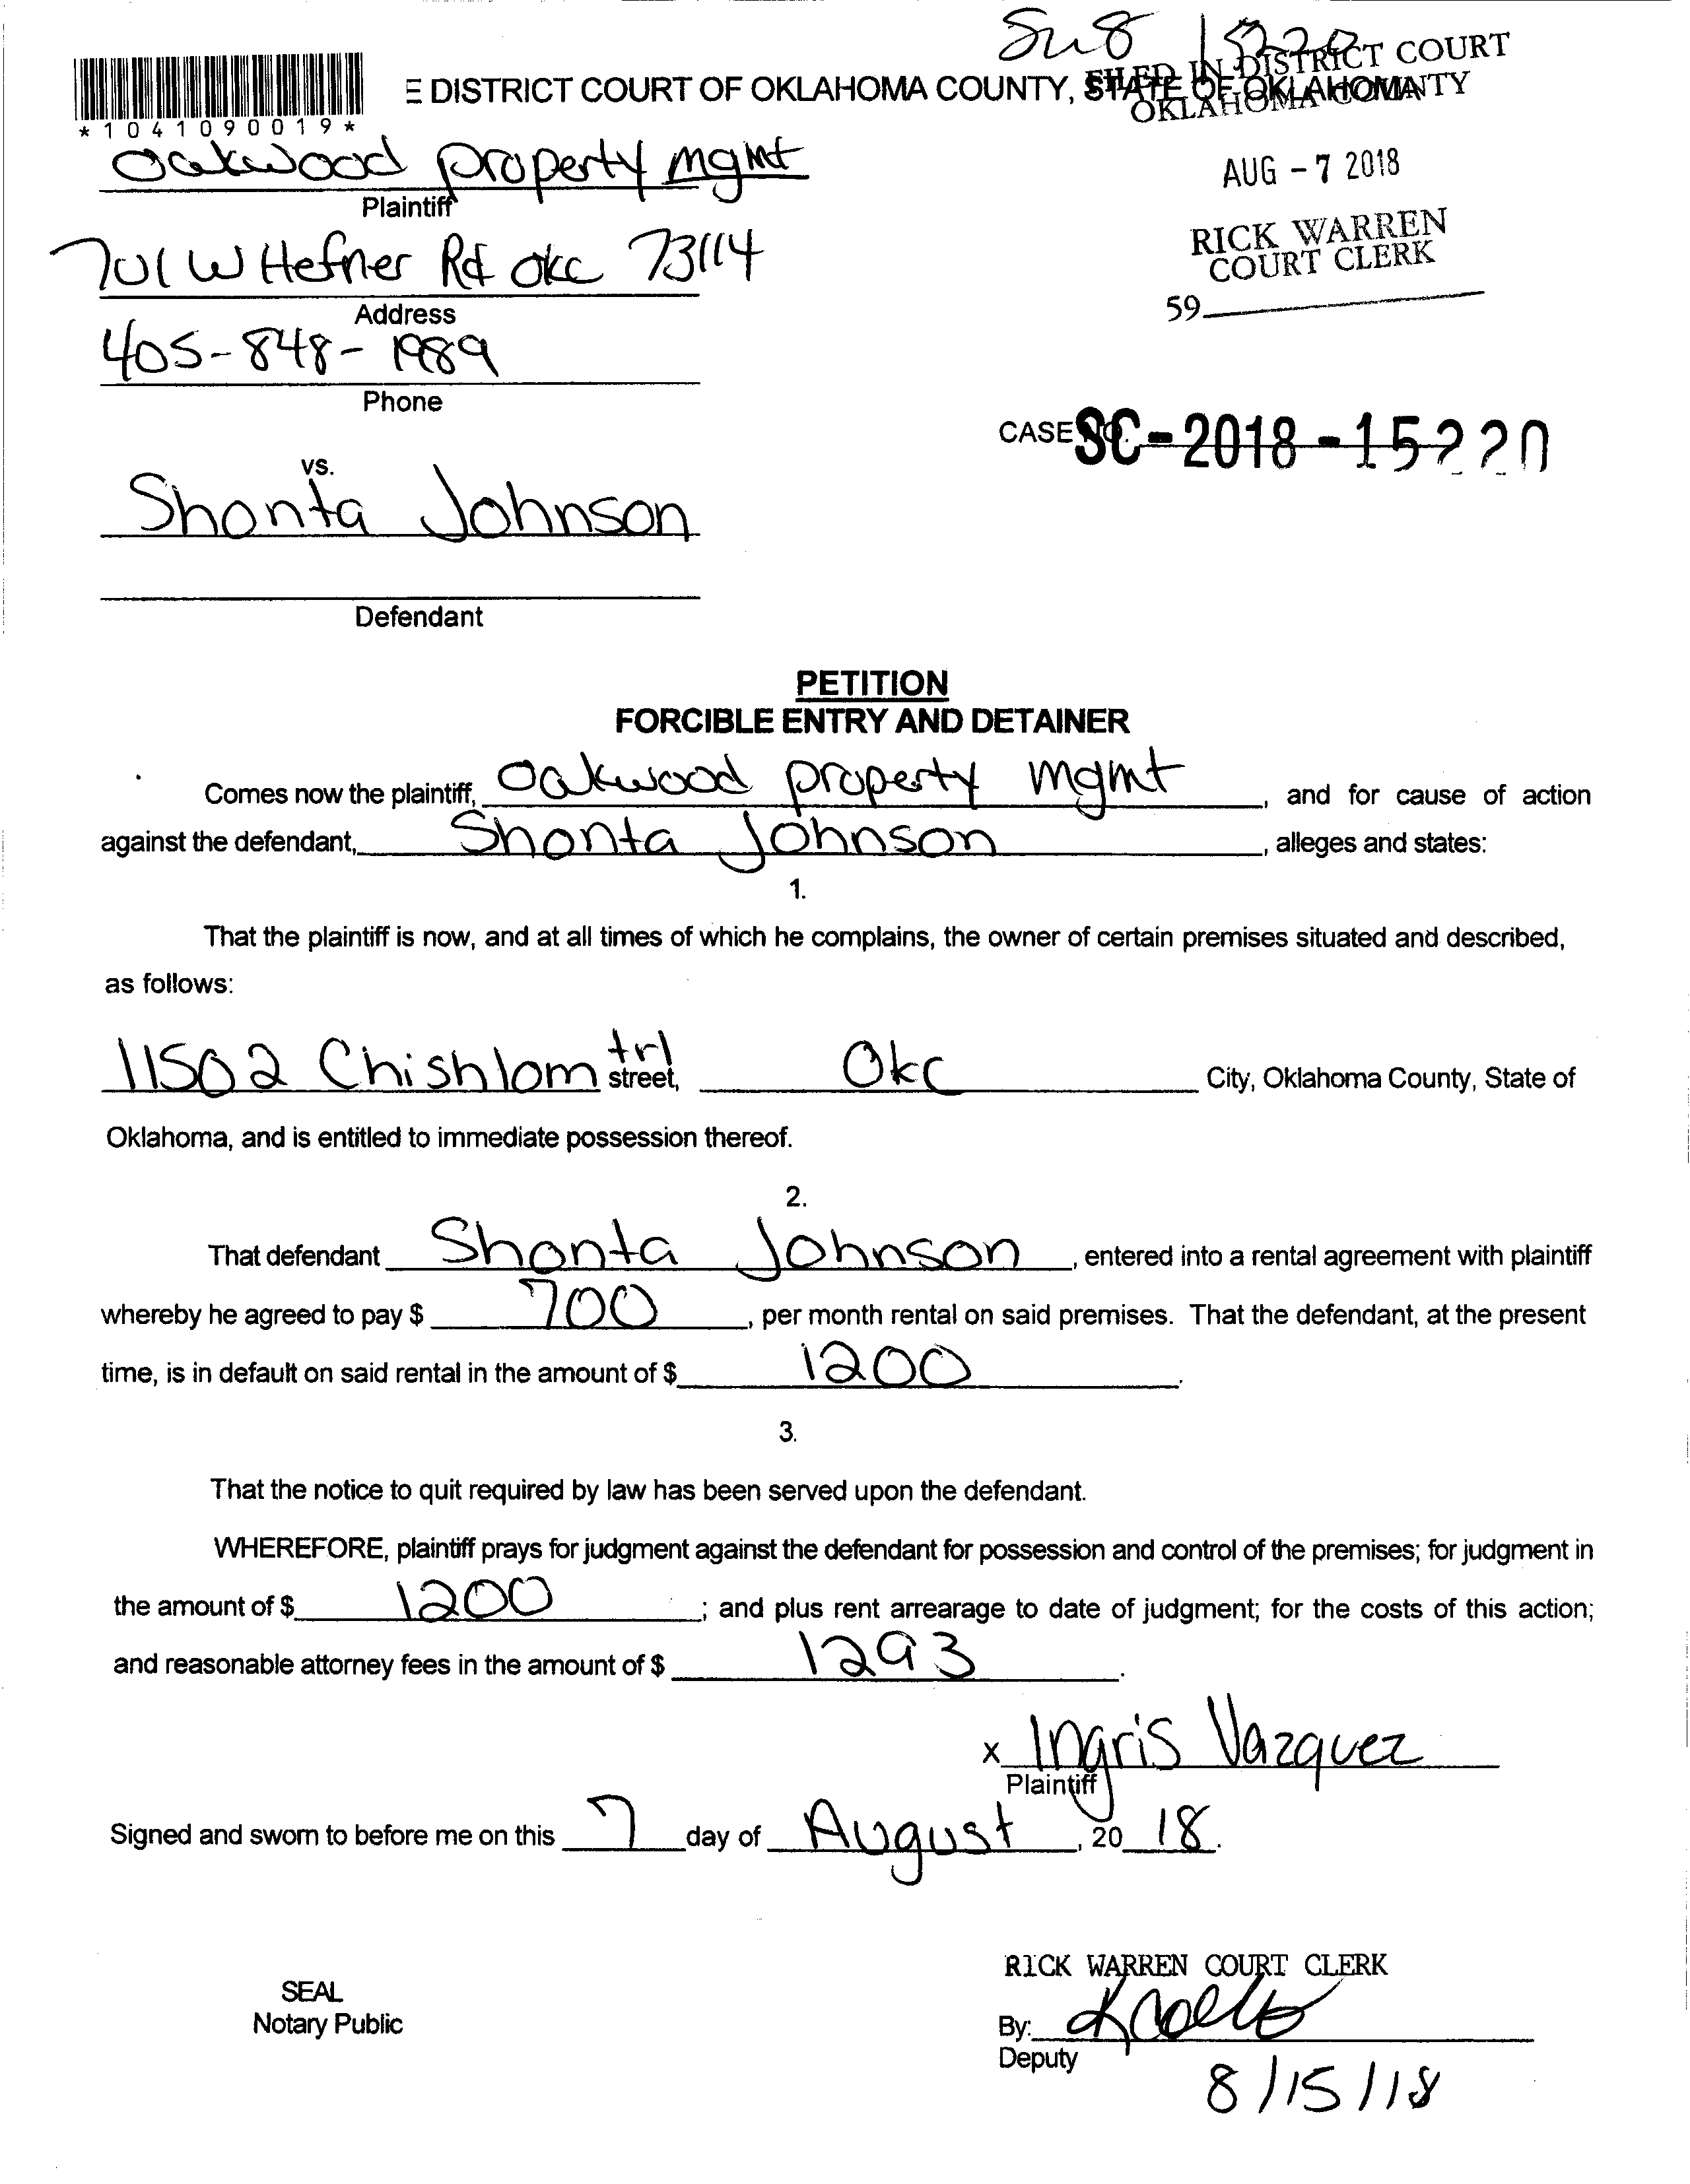 E DISTRICT COURT OF OKLAHOMA COUNTY, STATE OF OKLAHOMA
*1041090019*
FILED IN DISTRICT COURT
OKLAHOMA COUNTY
AUG - 7 2018
RICK WARREN
COURT CLERK
59
Oakwood property mgmt
Plaintiff
701 W Hefner Rd okc 73114
Address
405-848-1989
Phone
CASE NO. SC-2018-15220
vs.
Shonta Johnson
Defendant
PETITION
FORCIBLE ENTRY AND DETAINER
Comes now the plaintiff, Oakwood property mgmt, and for cause of action
against the defendant, Shonta Johnson, alleges and states:
1.
That the plaintiff is now, and at all times of which he complains, the owner of certain premises situated and described,
as follows:
11502 Chishlom trl street, Okc City, Oklahoma County, State of
Oklahoma, and is entitled to immediate possession thereof.
2.
That defendant Shonta Johnson, entered into a rental agreement with plaintiff
whereby he agreed to pay $ 700, per month rental on said premises. That the defendant, at the present
time, is in default on said rental in the amount of $ 1200.
3.
That the notice to quit required by law has been served upon the defendant.
WHEREFORE, plaintiff prays for judgment against the defendant for possession and control of the premises; for judgment in
the amount of $ 1200; and plus rent arrearage to date of judgment; for the costs of this action;
and reasonable attorney fees in the amount of $ 1293.
x Ingris Vazquez
Plaintiff
Signed and sworn to before me on this 7 day of August, 20 18.
RICK WARREN COURT CLERK
SEAL
Notary Public
By:
Deputy
8/15/18